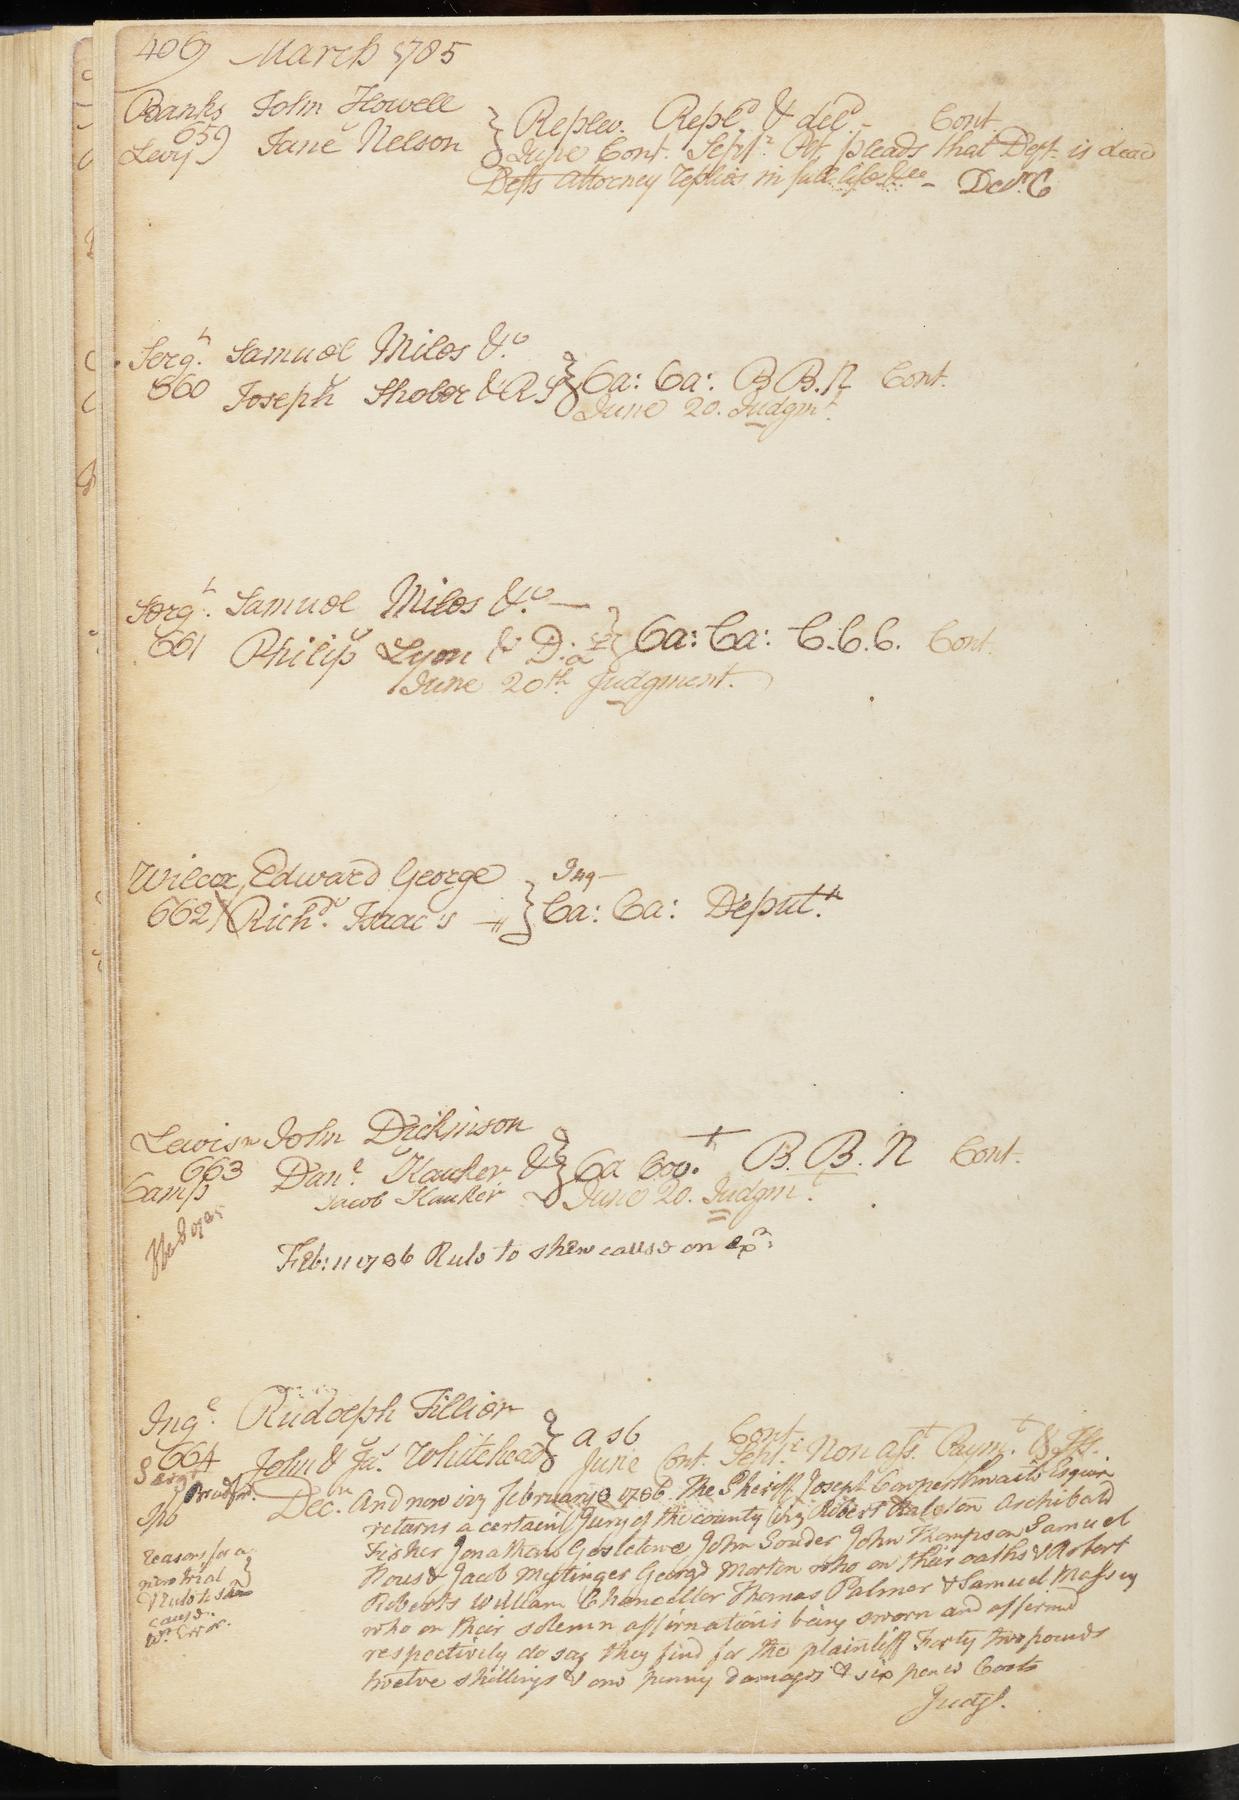 406 March 1785
Banks John Howell
659 v Replev. Repl.d & del.d – Cont
Levy Jane Nelson June Cont. Sept.r Plt pleads that Deft. is dead
Defts attorney replies in full life &c – Dec.r C
Serg.t Samuel Miles &.c
660 v Ca: Ca: B. B. N Cont.
Joseph Shober & 
June 20. Judgmt.
Serg.t Samuel Miles &.c —
661 v Ca: Ca: C.C.C. Cont.
Philip Lyon & D.
June 20th Judgment.
Wilcox Edward George Ing –
662 v Ca: Ca: Deput.
Rich.d Isaac's
Lewis John Dickinson
663 v Ca Cov. B. B. N Cont.
Camp Dan.l Hauker &
Jacob Hauker June 20. Judgm.t
Feb: 11 1786 Rule to shew cause on
Ing.l Rudolph Tillier
664 v a s6 Cont
Sergt John & Ja.s Whitehead June Cont. Sept.r Non ass.t Paym.t & Iss.
Bradfor. Dec.r And now viz february 1786 The Sheriff Joseph Cowperthwaite Esquire
returns a certain Jury of the county viz Robert Ralston Archibald
Fisher Jonathan John Souder John Thompson Samuel
House Jacob George Morton who on their oaths & Robert
Roberts William Chancellor Thomas Palmer & Samuel Massey
who on their solemn affirmations being sworn and affirmed
respectively do say they find for the plaintiff Forty two pounds
twelve shillings & one penny damages & six pence Costs
Judgt.
reasons for a
new trial
Rule to shew
cause.
Wt Error.